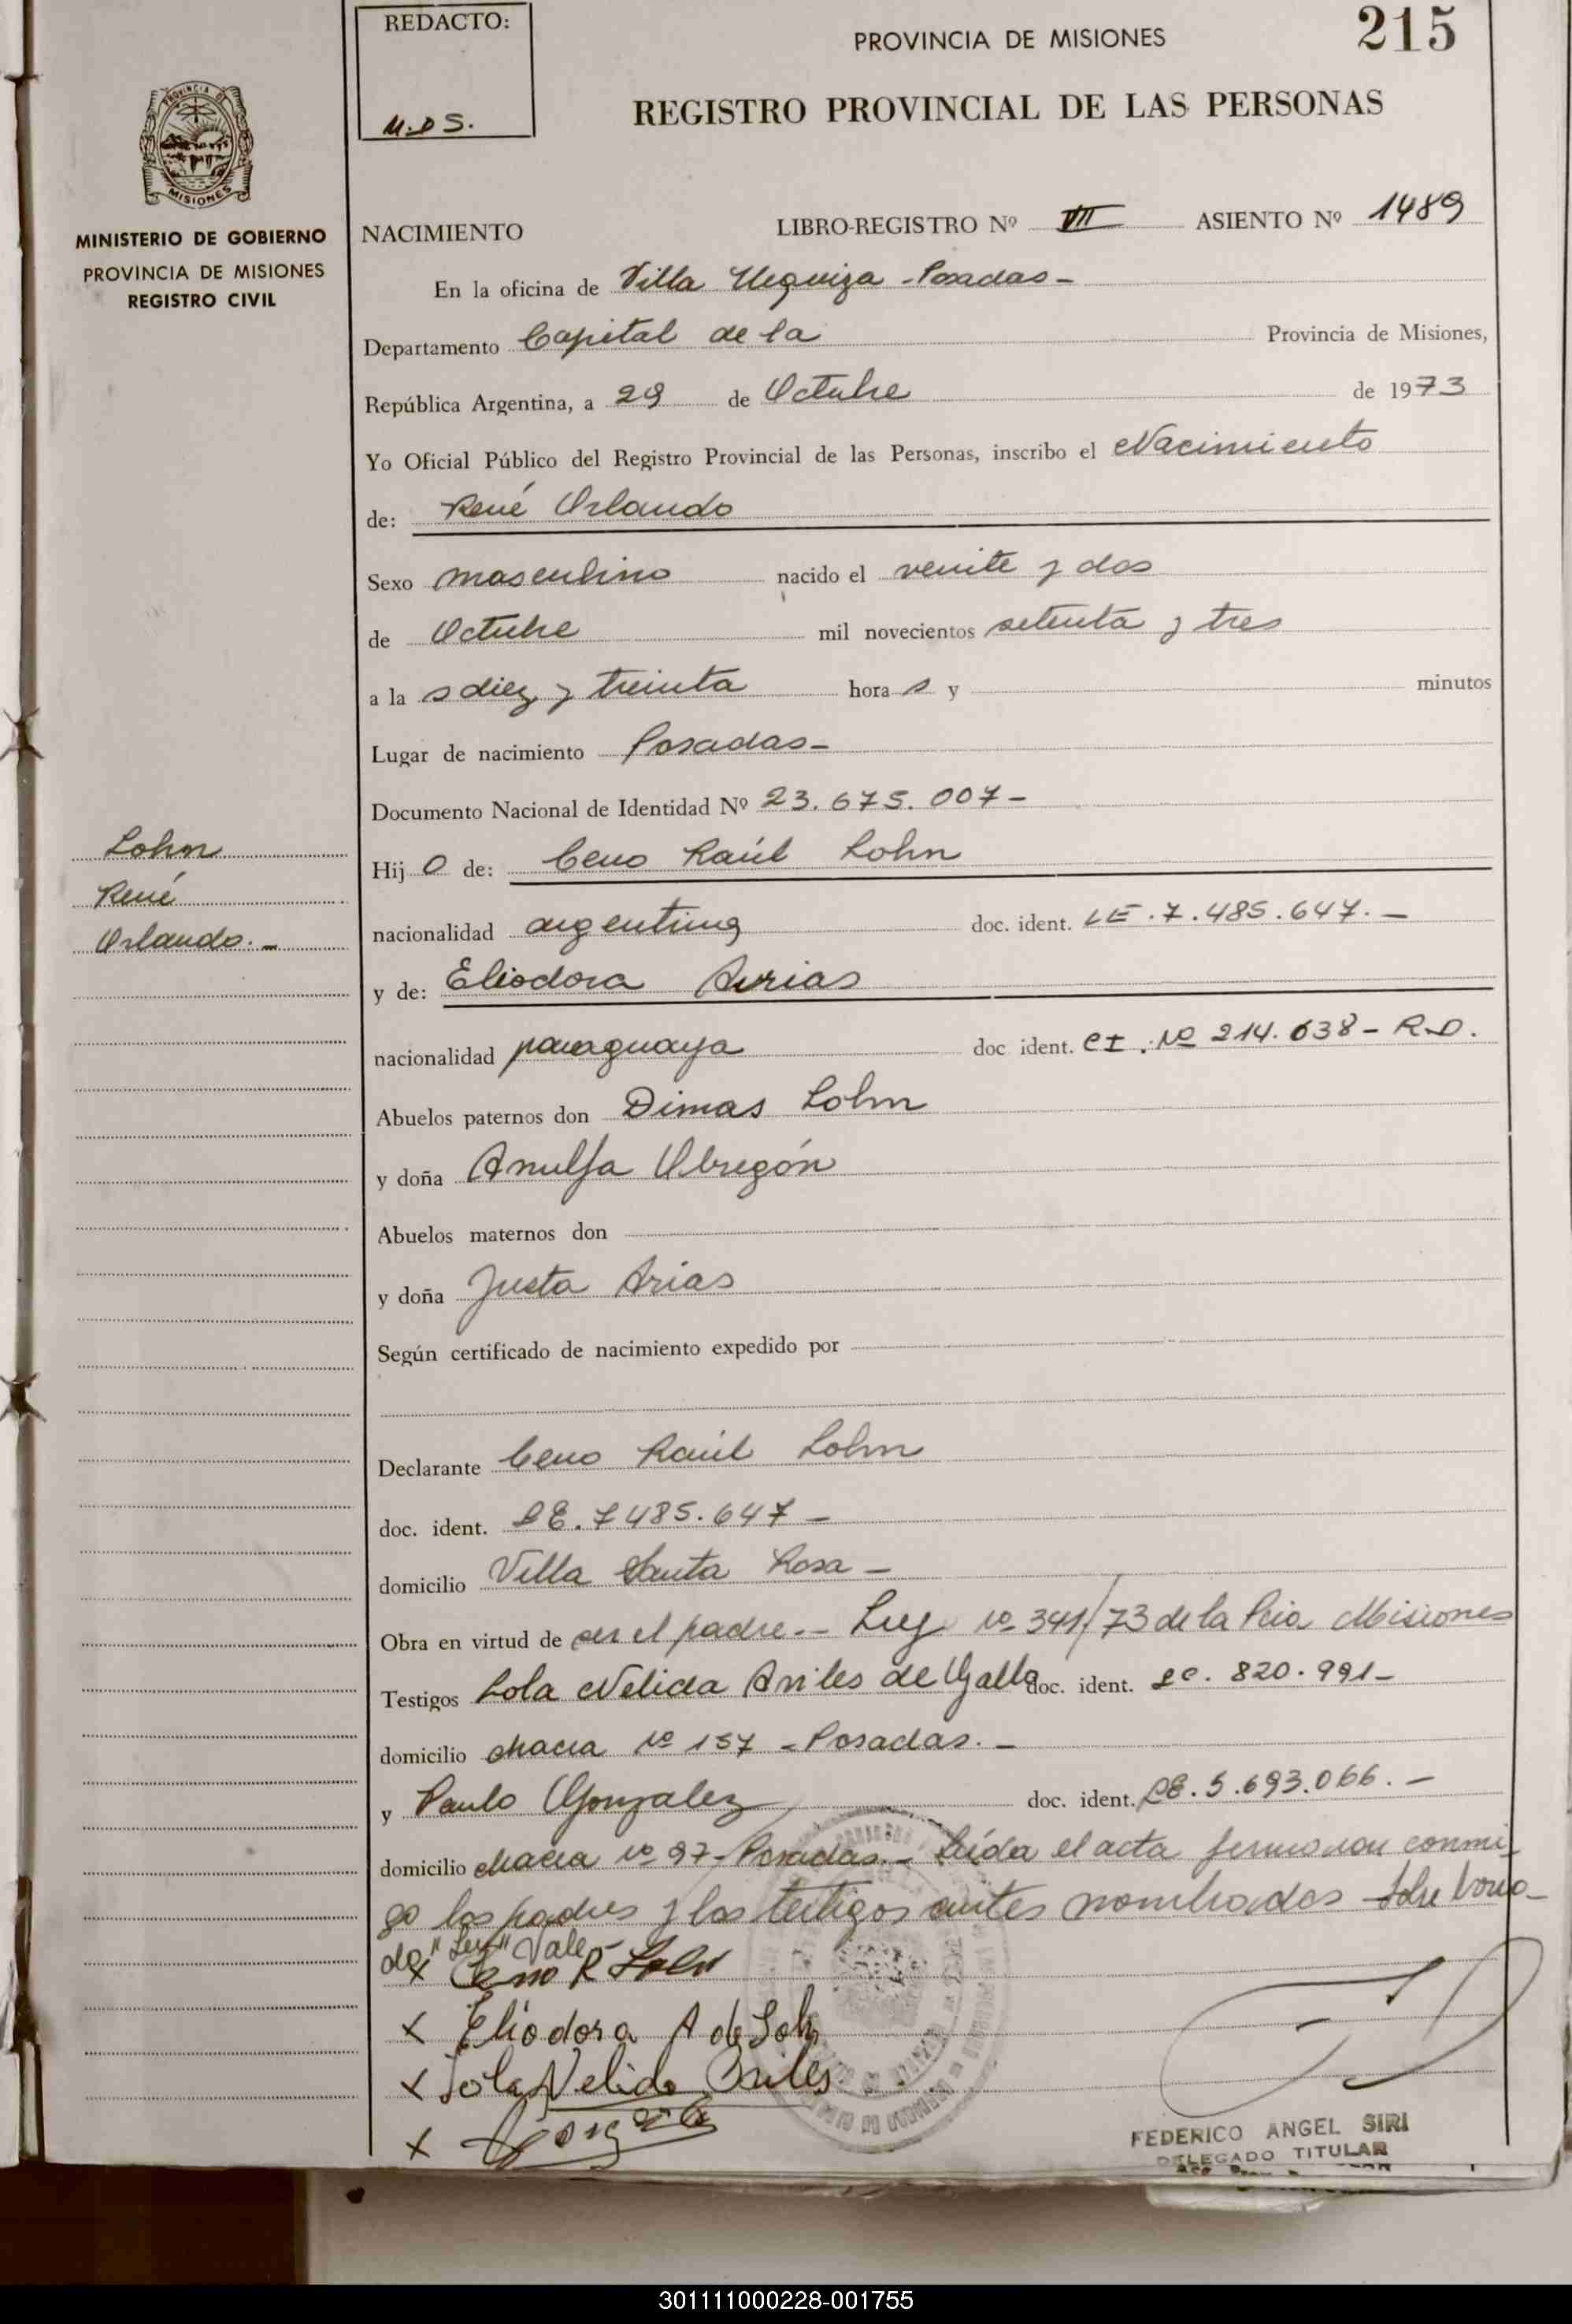 REDACTO:
M.D S.
PROVINCIA DE MISIONES
215
REGISTRO PROVINCIAL DE LAS PERSONAS
MISIONES
MINISTERIO DE GOBIERNO
PROVINCIA DE MISIONES
REGISTRO CIVIL
NACIMIENTO LIBRO-REGISTRO Nº VII ASIENTO Nº 1489
En la oficina de Villa Urquiza - Posadas -
Departamento Capital de la Provincia de Misiones,
República Argentina, a 29 de Octubre de 1973
Yo Oficial Público del Registro Provincial de las Personas, inscribo el Nacimiento
de: René Orlando
Sexo masculino nacido el veinte y dos
de Octubre mil novecientos setenta y tres
a la s diez y treinta hora s y minutos
Lugar de nacimiento Posadas -
Documento Nacional de Identidad Nº 23.675.007 -
Lohn
René
Orlando. -
Hij o de: Ceno Raúl Lohn
nacionalidad argentina doc. ident. LE. 7.485.647. -
y de: Eliodora Arias
nacionalidad paraguaya doc ident. CI. Nº 214.638 - R.D.
Abuelos paternos don Dimas Lohn
y doña Arnulfa Obregón
Abuelos maternos don
y doña Justa Arias
Según certificado de nacimiento expedido por
Declarante Ceno Raúl Lohn
doc. ident. LE. 7485.647 -
domicilio Villa Santa Rosa -
Obra en virtud de ser el padre. - Ley Nº 341/73 de la Pcia Misiones
Testigos Lola Nelida Aviles de Galla doc. ident. LC. 820.991 -
domicilio chacra Nº 157 - Posadas. -
y Paulo Gonzalez doc. ident. LE. 5.693.066. -
domicilio chacra Nº 97 - Posadas. - Leída el acta firmaron conmi-
go los padres y los testigos antes nombrados Sobre borra-
do "Ley" Vale -
x Ceno R Lohn
x Eliodora A de Loh
x Lola Nelida Aviles
x
FEDERICO ANGEL SIRI
DELEGADO TITULAR
301111000228-001755